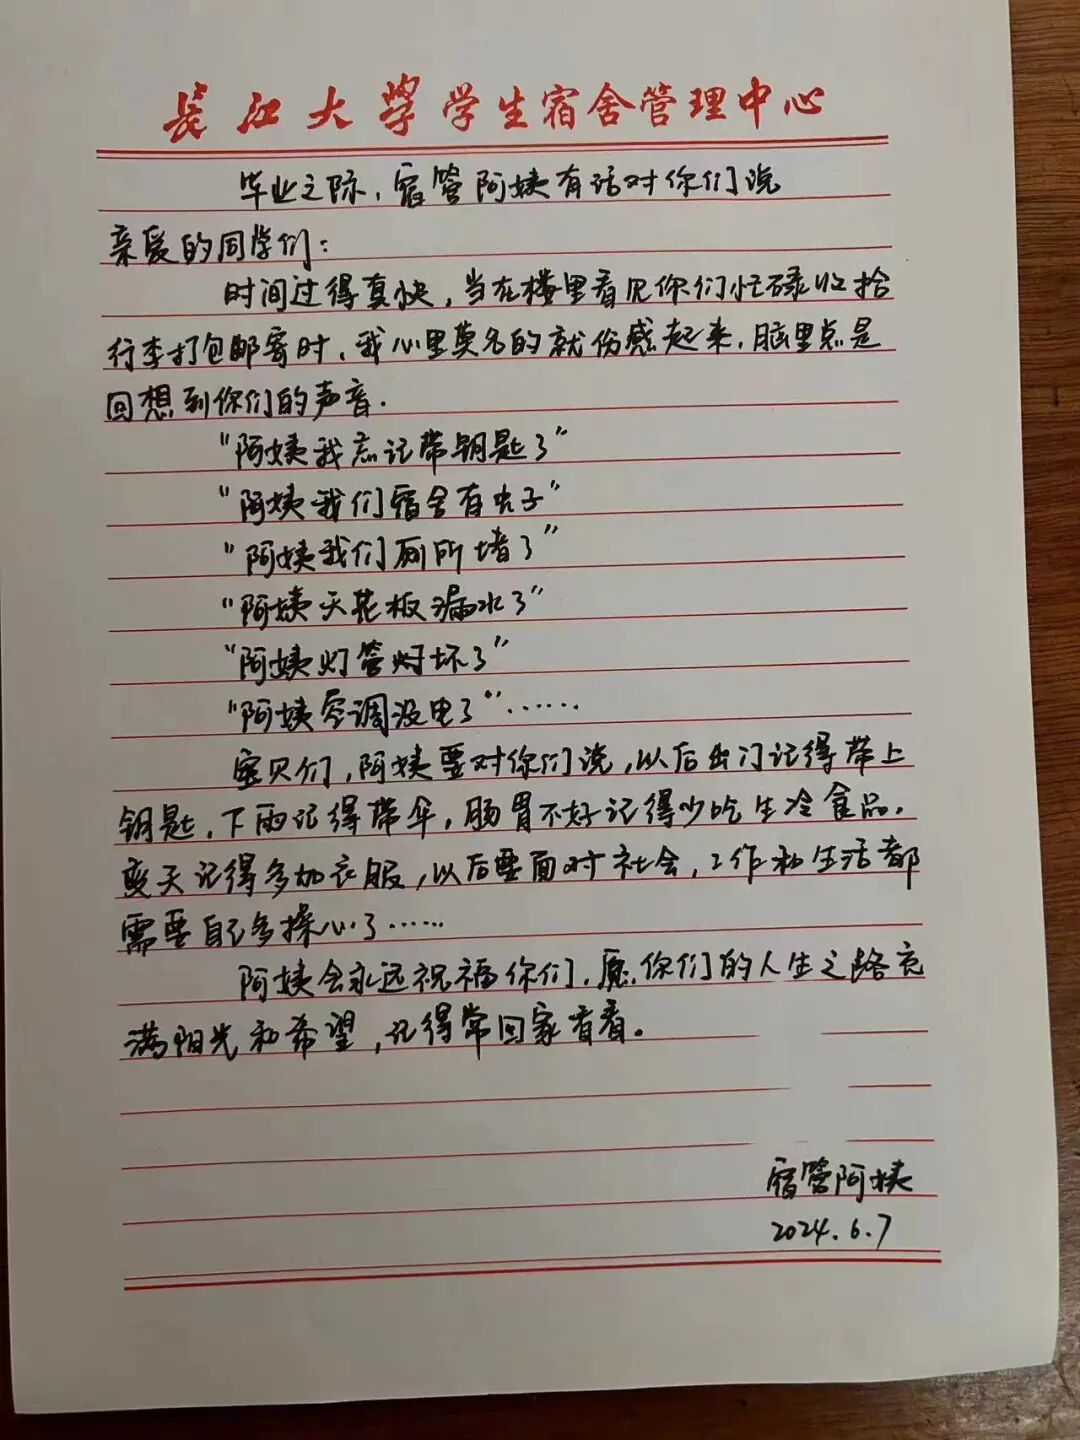 长江大学学生宿舍管理中心
毕业之际，宿管阿姨有话对你们说
亲爱的同学们：
时间过得真快，当在楼里看见你们忙碌收拾
行李打包邮寄时，我心里莫名的就伤感起来，脑里总是
回想到你们的声音.
“阿姨我忘记带钥匙了”
“阿姨我们宿舍有虫子”
“阿姨我们厕所堵了”
“阿姨天花板漏水了”
“阿姨灯管灯坏了”
“阿姨空调没电了”……
宝贝们，阿姨要对你们说，以后出门记得带上
钥匙，下雨记得带伞，肠胃不好记得少吃生冷食品.
变天记得多加衣服，以后要面对社会，工作和生活都
需要自己多操心了……
阿姨会永远祝福你们，愿你们的人生之路充
满阳光和希望，记得常回家看看。
宿管阿姨
2024.6.7